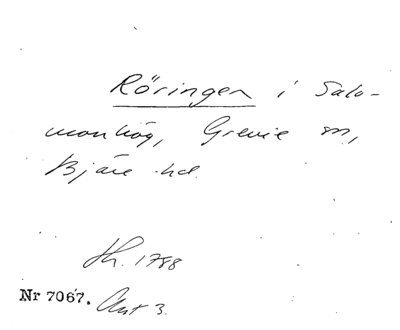 Röringen i Salo-
monhög, Grevie sn,
Bjäre hd.
Th. 1788
Nr 7067. Ant 3.